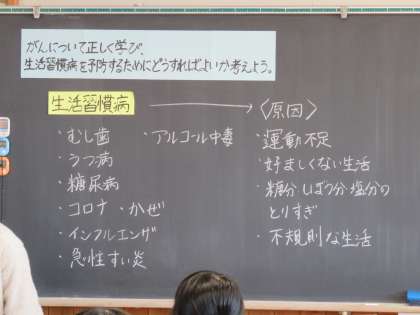 がんについて正しく学び、
生活習慣病を予防するためにどうすればよいか考えよう。
生活習慣病 → 〈原因〉
・むし歯 ・アルコール中毒
・うつ病
・糖尿病
・コロナ ・かぜ
・インフルエンザ
・急性すい炎
・運動不足
・好ましくない生活
・糖分・しぼう分・塩分の
とりすぎ
・不規則な生活